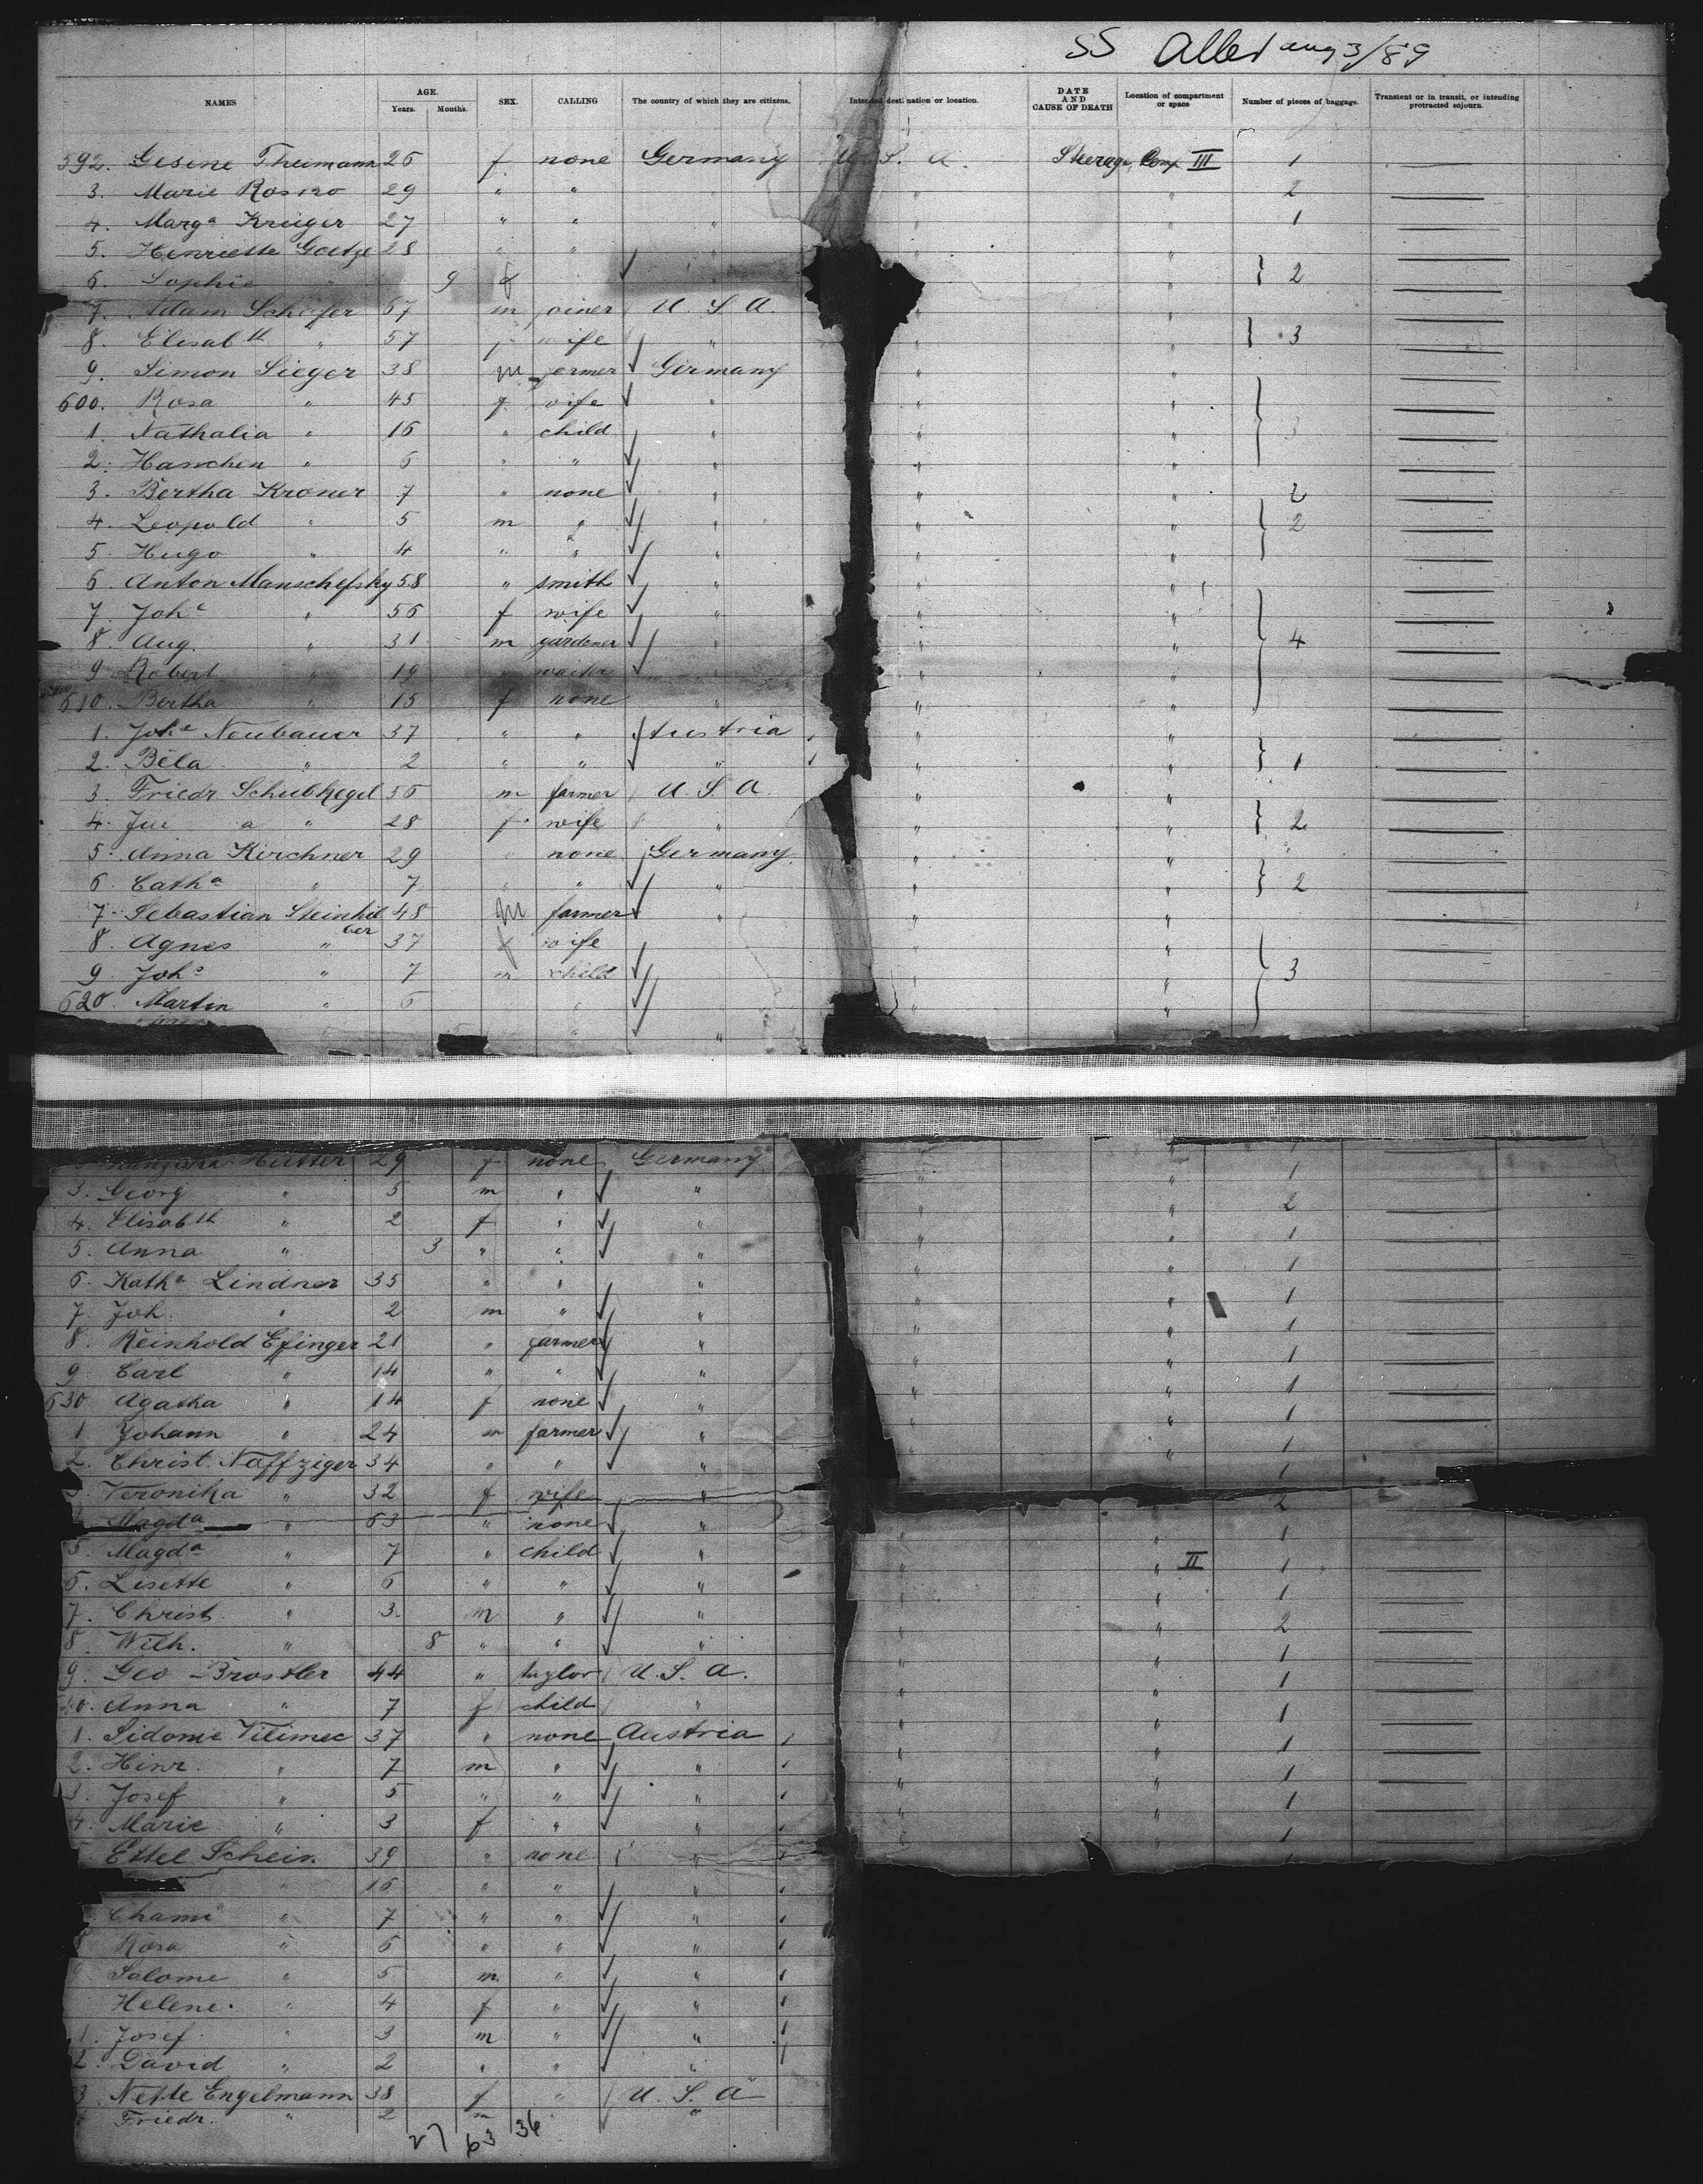 SS Aller aug 3/89
NAMES AGE. Years. Months. SEX. CALLING The country of which they are citizens. Intended destination or location. DATE AND CAUSE OF DEATH Location of compartment or space Number of pieces of baggage. Transient or in transit, or intending protracted sojourn.
592. Gesine Theimann 26 f none Germany U. S. A. Steerage Comp III 1
3. Marie 29 " " " 2
4. Marga Krüger 27 " " " " 1
5. Henriette Goetze 28 " " "
6. Sophie " 9 f " " } 2
7. Adam Schäfer 57 m joiner U. S. A. " "
8. Elisabth " 57 f wife " " " } 3
9. Simon Sieger 38 m farmer Germany " "
600. Rosa " 45 f wife " " "
1. Nathalia " 16 " child " " " } 3
2. Hanchen " 6 " " " " "
3. Bertha Kroner 7 " none " " " 2
4. Leopold " 5 m " " " " } 2
5. Hugo " 4 " " " " "
6. Anton Manschefsky 58 " smith " " "
7. Johe " 56 f wife " " "
8. Aug. " 31 m gardener " " " } 4
9. Robert " 19 " waiter " " "
610. Bertha " 15 f none " " "
1. Johe Neubauer 37 " " Austria " "
2. Béla " 2 " " " " " } 1
3. Friedr Scheibhegel 56 m farmer U. S. A. " "
4. a " 28 f. wife " " " } 2
5. Anna Kirchner 29 " none Germany " "
6. Catha " 7 " " " " " } 2
7. Sebastian Steinhilber 48 m farmer " " "
8. Agnes " 37 f wife " "
9. Johs " 7 m child " " " } 3
620. Martin " 6 " " "
" "
Hutter 29 f none Germany " " 1
3. Georg " 5 m " " " " 1
4. Elisabth " 2 f " " " " 2
5. Anna " 3 " " " " " 1
6. Katha Lindner 35 " " " " " 1
7. Joh. " 2 m " " " " 1
8. Reinhold Efinger 21 " farmer " " " 1
9. Carl " 14 " " " " " 1
630 Agatha " 14 f none " " " 1
1. Johann " 24 m farmer " " " 1
2. Christ. Naffziger 34 " " " " " 1
3. Veronika " 32 f wife " 1
Magda " 63 " none " 2
5. Magda " 7 " child " " " 1
6. Lisette " 6 " " " " " II 1
7. Christ " 3 m " " " " 1
8. Wilh. " 8 " " " " " 2
9. Geo Brostler 44 " taylor U. S. A. " " 1
40. Anna " 7 f child " " " 1
1. Sidonie Vilimec 37 " none Austria " " 1
2. Hinr. " 7 m " " " " 1
3. Josef " 5 " " " " " 1
4. Marie " 3 f " " " " 1
Ettel Schein 39 " none " " " 1
" 16 " " "
Chami " 7 " " "
8 Rosa " 6 " " "
Salome " 5 m " "
Helene. " 4 f " "
1. Josef. " 3 m " "
2. David " 2 " " "
3 Nette Engelmann 38 f " U. S. A
Friedr. " 2 m "
27 63 36